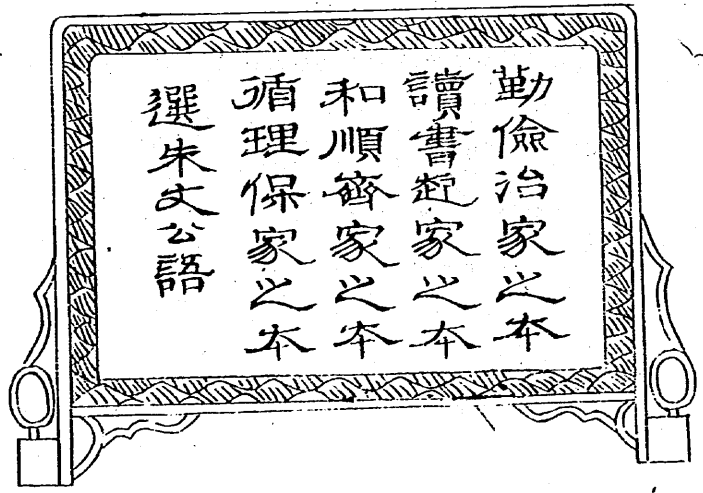 勤儉治家之本
讀書起家之本
和順齊家之本
循理保家之本
選朱文公語